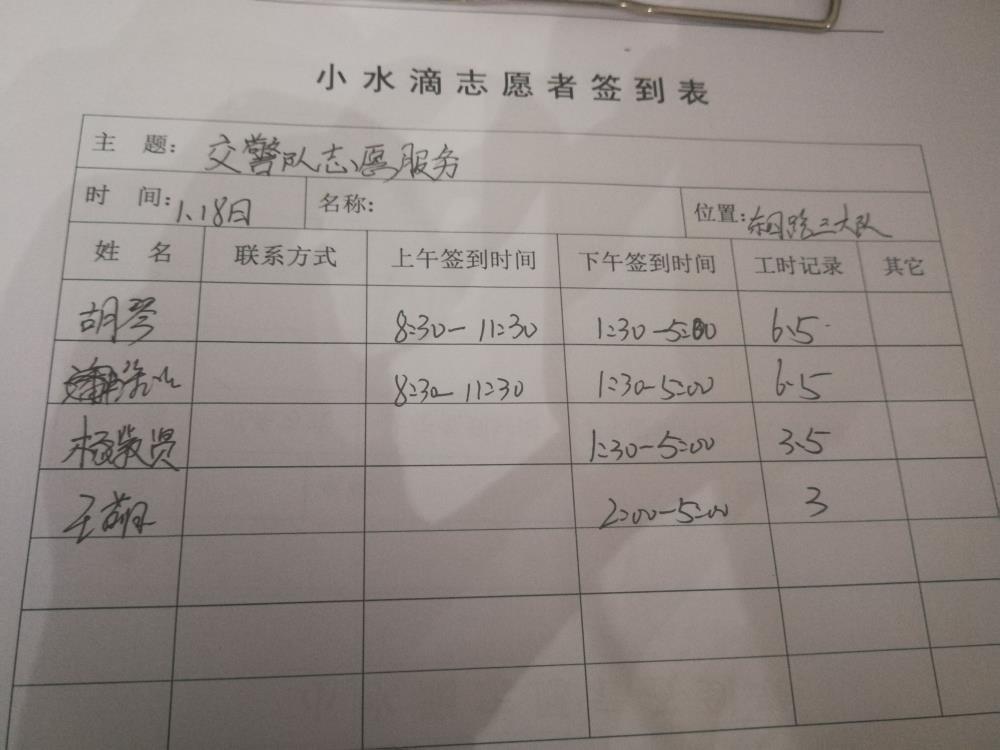 小水滴志愿者签到表
主 题: 交警队志愿服务
时 间: 1、18日 名称: 位置: 三大队
姓 名 联系方式 上午签到时间 下午签到时间 工时记录 其它
胡琴 8:30-11:30 1:30-5:00 6.5
8:30-11:30 1:30-5:00 6.5
杨紫贤 1:30-5:00 3.5
王萌 2:00-5:00 3